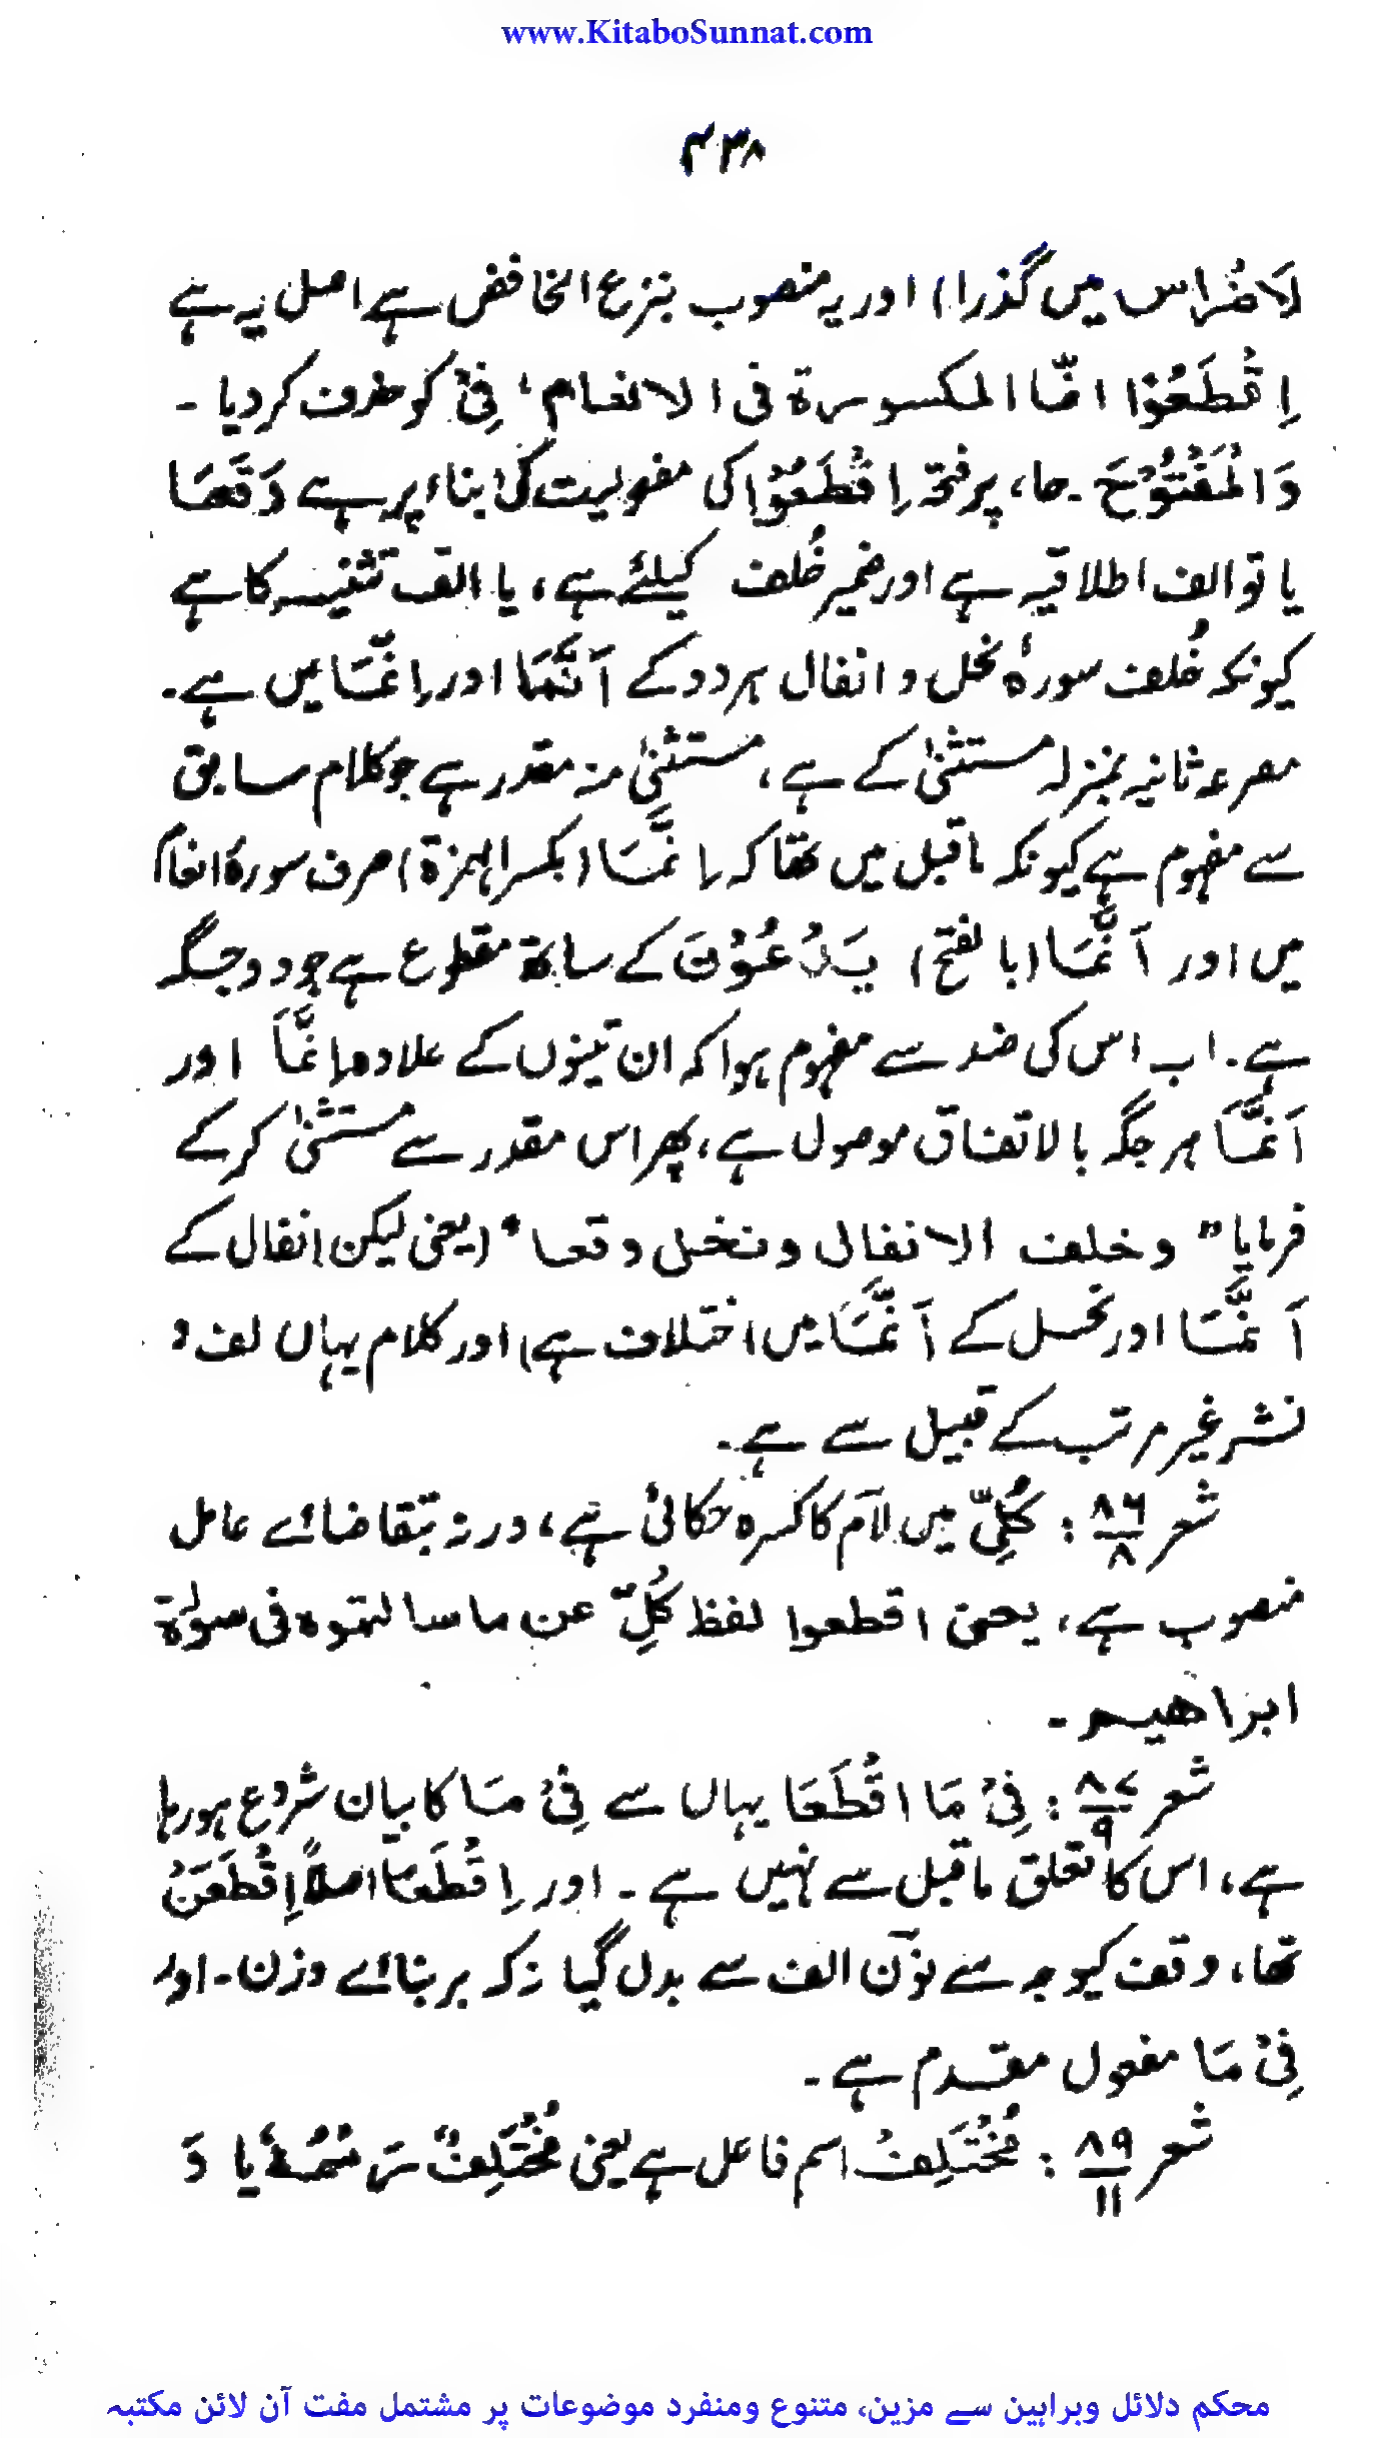 www.KitaboSunnat.com
۴۳۸
میں گذرا) اور یہ منصوب بنزع الخافض ہے اصل یہ ہے
اِقْطَعُوْا انّما المکسورة فی الانعام، فِیْ کو حذف کردیا ۔
وَالْمَفْتُوْحَ ۔ حا، پر فتحہ اِقْطَعُوْا کی مفعولیت کی بناء پر ہے وَقَعَا
یا تو الف اطلاقیہ ہے اور ضمیر خُلف کیلئے ہے، یا الف تثنیہ کا ہے
کیونکہ خُلف سورۂ نحل و انفال ہر دو کے اَنَّمَا اور اِنَّمَا میں ہے۔
مصرعہ ثانیہ بمنزلہ مستثنیٰ کے ہے، مستثنیٰ منہ مقدر ہے جو کلام سابق
سے مفہوم ہے کیونکہ ماقبل میں تھا کہ اِنَّمَا (بکسر الہمزة) صرف سورۂ انعام
میں اور اَنَّمَا (بالفتح) یَدْعُوْنَ کے ساتھ مقطوع ہے جو دو جگہ
ہے۔ اب اس کی ضد سے مفہوم ہوا کہ ان تینوں کے علاوہ اِنَّمَا اور
اَنَّمَا ہر جگہ بالاتفاق موصول ہے، پھر اس مقدر سے مستثنیٰ کر کے
فرمایا " وخلف الانفال ونحل وقعا " (یعنی لیکن انفال کے
اَنَّمَا اور نحل کے اَنَّمَا میں اختلاف ہے) اور کلام یہاں لف و
نشر غیر مرتب کے قبیل سے ہے۔
شعر ۸۶/۸ : کُلِّ میں لام کا کسرہ حکائی ہے، ورنہ بتقاضائے عامل
منصوب ہے، یعنی اقطعوا لفظ کُلِّ عن ما سالتموہ فی سورة
ابراھیم ۔
شعر ۸۷/۹ : فِیْ مَا اقْطَعَا یہاں سے فِیْ مَا کا بیان شروع ہو رہا
ہے، اس کا تعلق ماقبل سے نہیں ہے ۔ اور اِقْطَعَا اصلاً اِقْطَعَنْ
تھا، وقف کیوجہ سے نون الف سے بدل گیا نہ کہ بر بنائے وزن ۔ اور
فِیْ مَا مفعول مقدم ہے ۔
شعر ۸۹/۱۱ : مُخْتَلِفْ اسم فاعل ہے یعنی مُخْتَلِفٌ رَسْمُہٗ یا وَ
محکم دلائل وبراہین سے مزین، متنوع ومنفرد موضوعات پر مشتمل مفت آن لائن مکتبہ